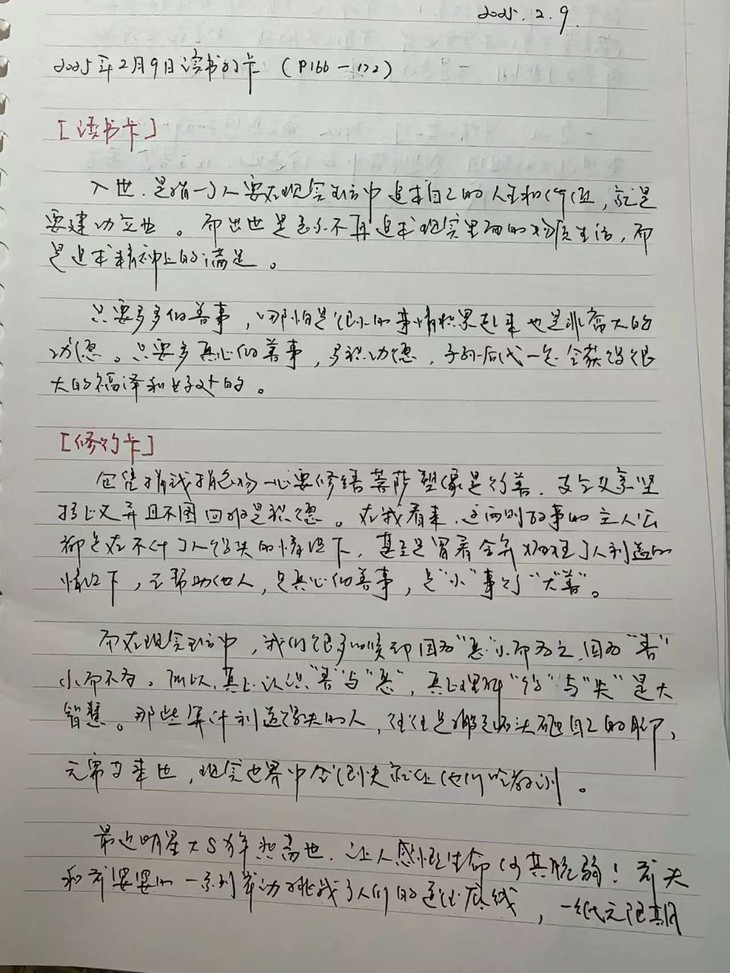 2025.2.9.
2025年2月9日读书打卡 (P166-172)
[读书卡]
入世,是指一个人要在现实生活中追求自己的人生和价值,就是
要建功立业。而出世是表示不再追求现实里面的物质生活,而
是追求精神上的满足。
只要多多做善事,哪怕是很小的事情积累起来也是非常大的
功德。只要多真心做善事,多积功德,子孙后代一定会获得很
大的福泽和好处的。
[修行卡]
捐钱捐色物一心要修缮菩萨塑像是行善,
且不图回报是积德。在我看来,这两则故事的主人公
都是在不计个人得失的情况下,甚至是冒着个人利益的
情况下,去帮助他人,是真心做善事,是“小”事行“大善”。
而在现实生活中,我们很多时候却因为“恶”小而为之,因为“善”
小而不为。所以,真正认识“善”与“恶”,真正理解“得”与“失”是大
智慧。那些算计利益得失的人,往往是搬起石头砸自己的脚,
元常等辈也,现实世界中会很快就让他们吃教训。
最近明星大S猝然离世,让人感慨生命何其脆弱!前夫
和前婆婆的一系列举动挑战了人们的道德底线,一纸无限期